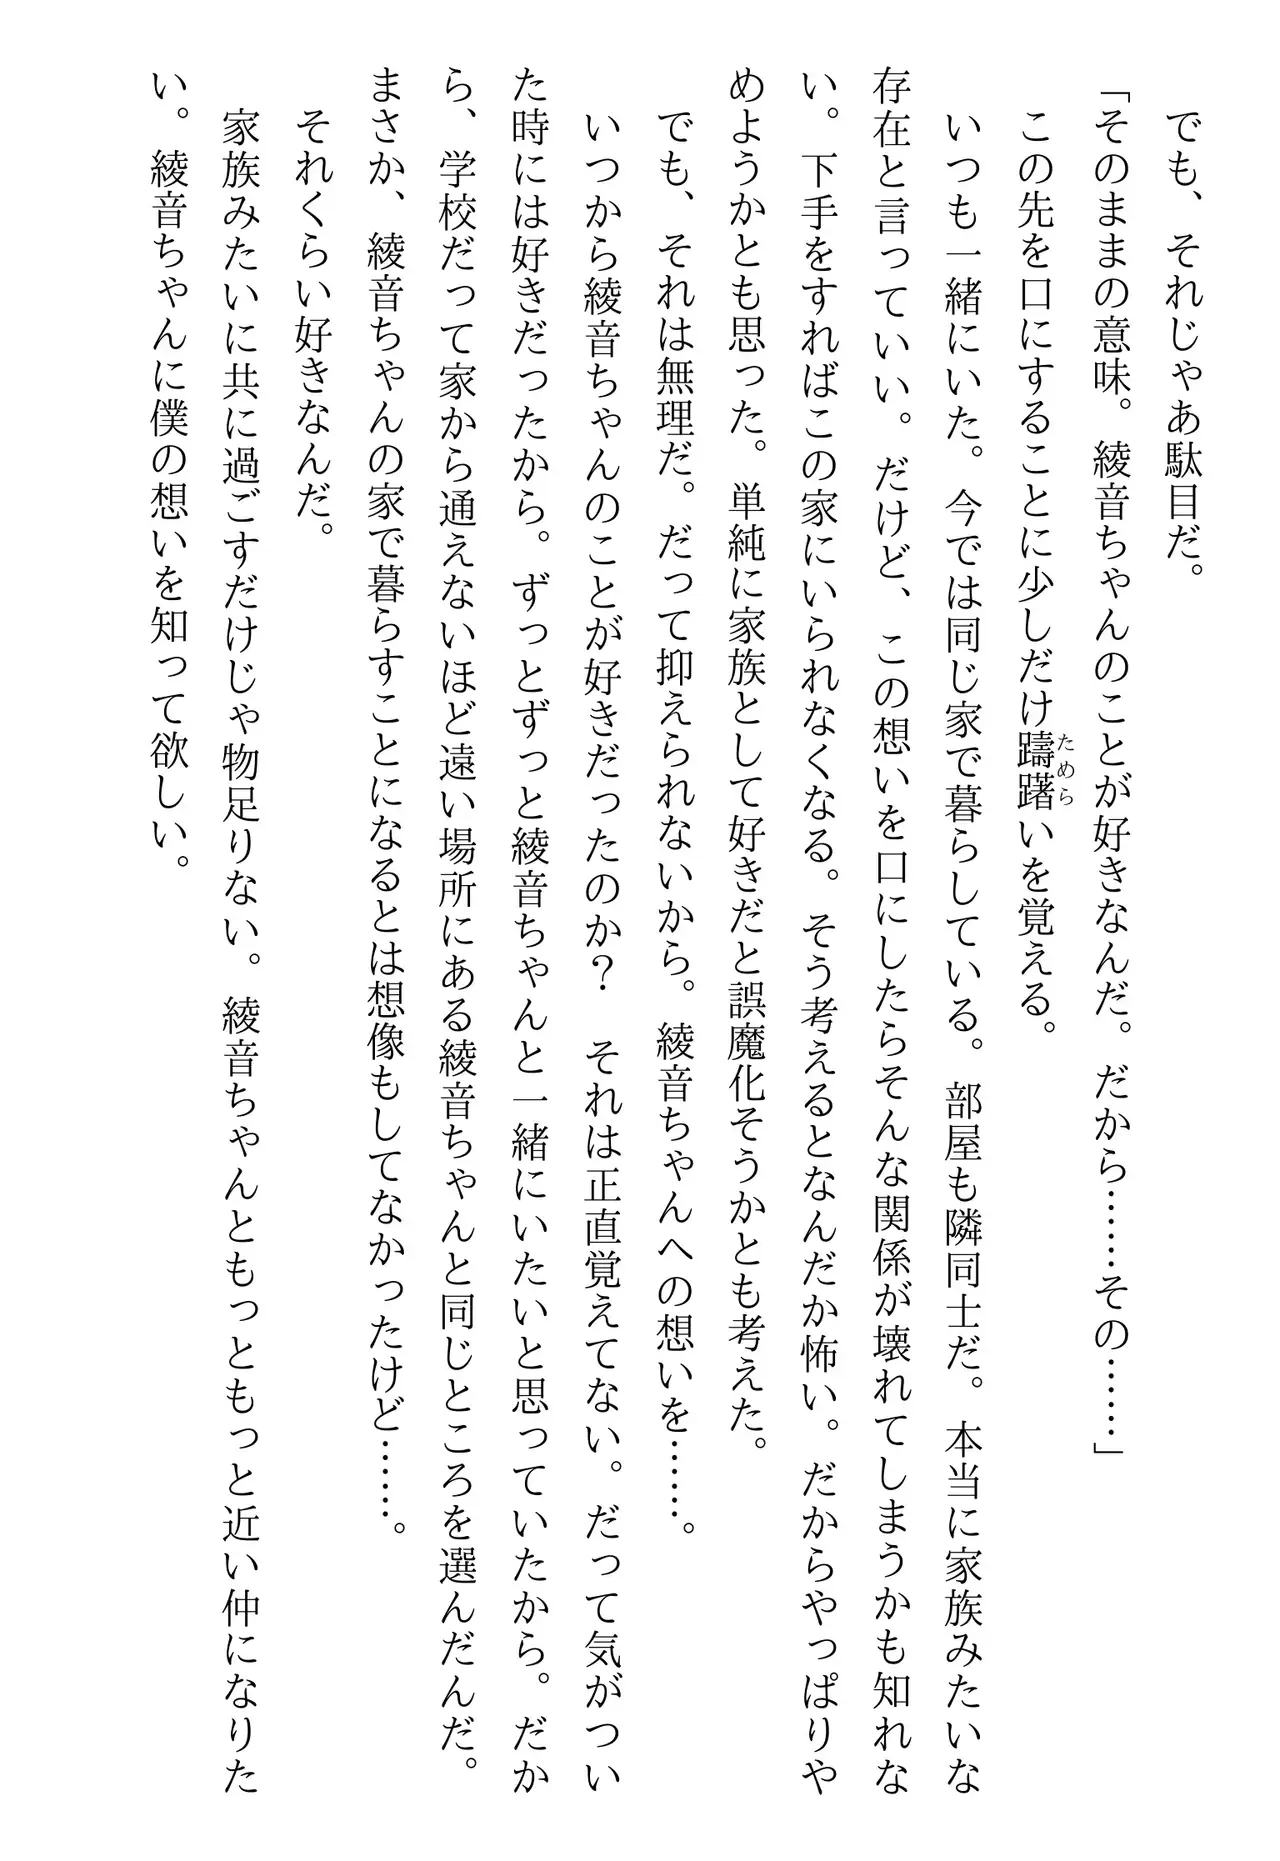 でも、それじゃあ駄目だ。
「そのままの意味。綾音ちゃんのことが好きなんだ。だから……その……」
この先を口にすることに少しだけ躊躇いを覚える。
ためら
いつも一緒にいた。今では同じ家で暮らしている。部屋も隣同士だ。本当に家族みたいな
存在と言っていい。だけど、この想いを口にしたらそんな関係が壊れてしまうかも知れな
い。下手をすればこの家にいられなくなる。そう考えるとなんだか怖い。だからやっぱりや
めようかとも思った。単純に家族として好きだと誤魔化そうかとも考えた。
でも、それは無理だ。だって抑えられないから。綾音ちゃんへの想いを……。
いつから綾音ちゃんのことが好きだったのか？　それは正直覚えてない。だって気がつい
た時には好きだったから。ずっとずっと綾音ちゃんと一緒にいたいと思っていたから。だか
ら、学校だって家から通えないほど遠い場所にある綾音ちゃんと同じところを選んだんだ。
まさか、綾音ちゃんの家で暮らすことになるとは想像もしてなかったけど……。
それくらい好きなんだ。
家族みたいに共に過ごすだけじゃ物足りない。綾音ちゃんともっともっと近い仲になりた
い。綾音ちゃんに僕の想いを知って欲しい。